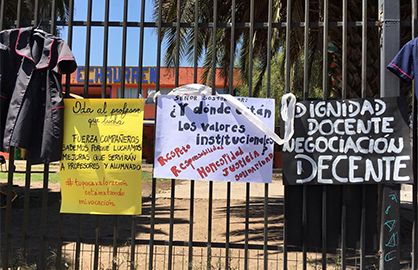 ECHAURRE
Oda al profesor
que lucha
FUERZA COMPAÑEROS
SABEMOS PORQUE LUCHAMOS
MEJORAS QUE SERVIRÁN
A PROFESORES Y ALUMNADO
#tupocavaloración
está matando
mi vocación
SEÑOR
¿Y dónde están
los valores
institucionales
Respeto
Responsabilidad
Honestidad
Justicia
Solidaridad
DIGNIDAD
DOCENTE
NEGOCIACIÓN
DECENTE